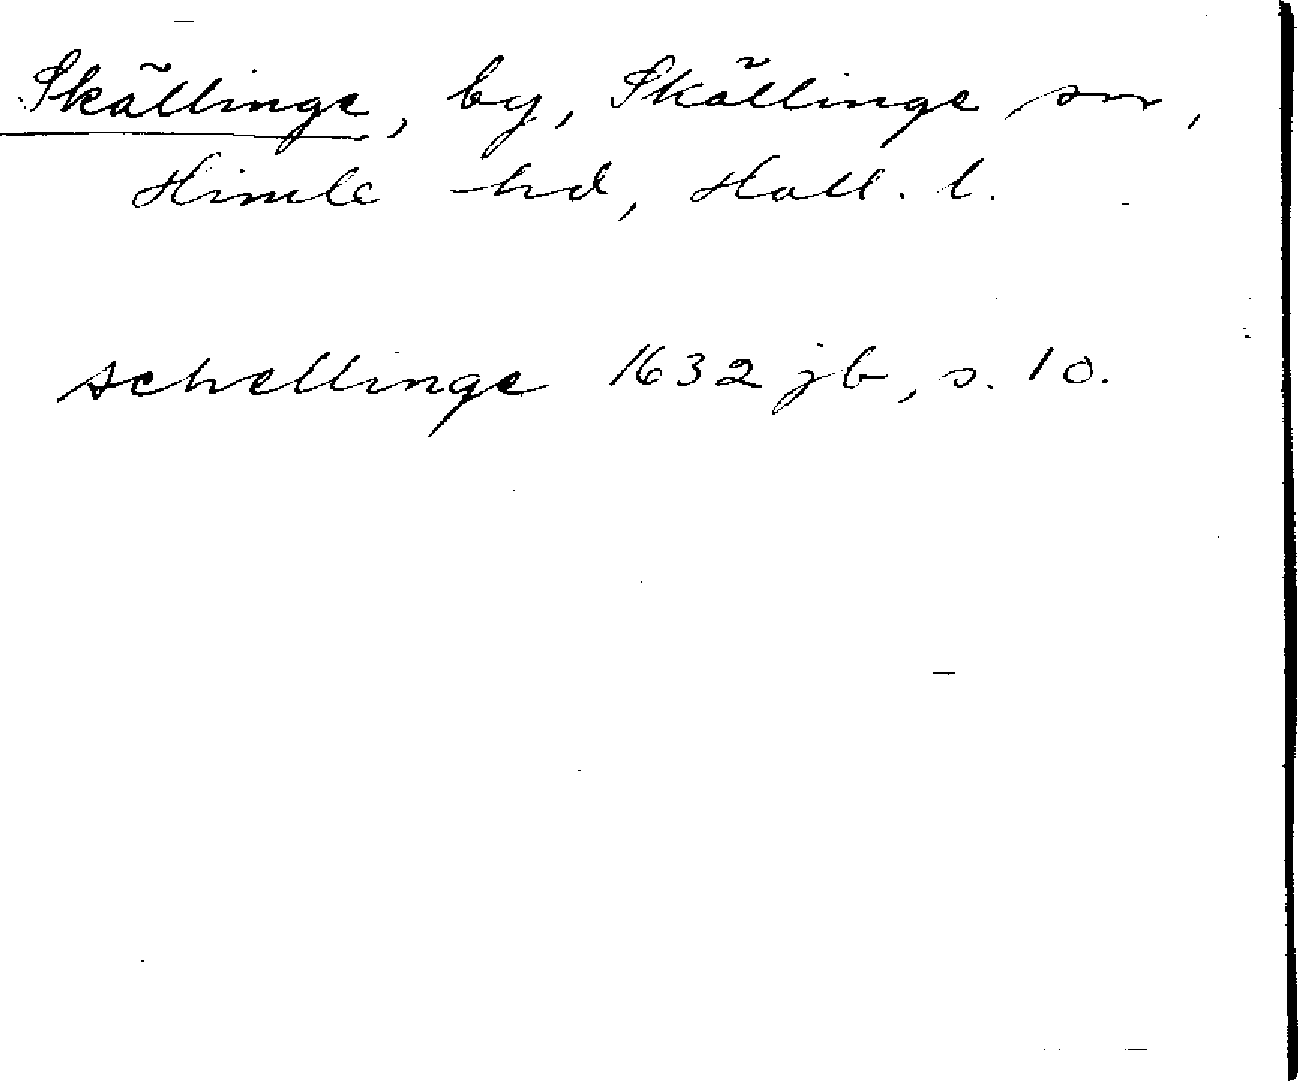 Skällinge, by, Skällinge sn,
Himle hd, Hall. l.
schellinge 1632 jb, s. 10.